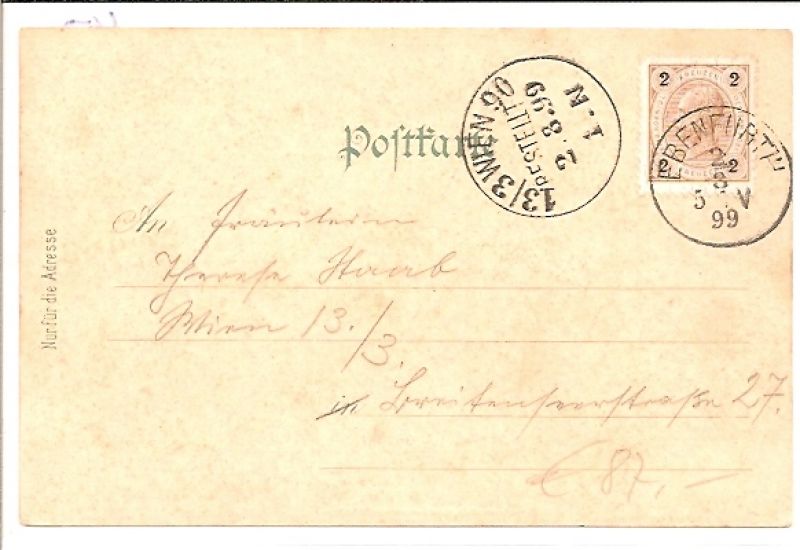 Postkarte
2 KREUZER 2
2 2
EBENFURTH
2
8
5 V
99
13/3 WIEN 90
BESTELLT
2.8.99
1.N
Nur für die Adresse
An Fräulein
Therese Staab
Wien 13./3.
in Breitenseerstraße 27.
€ 87,-